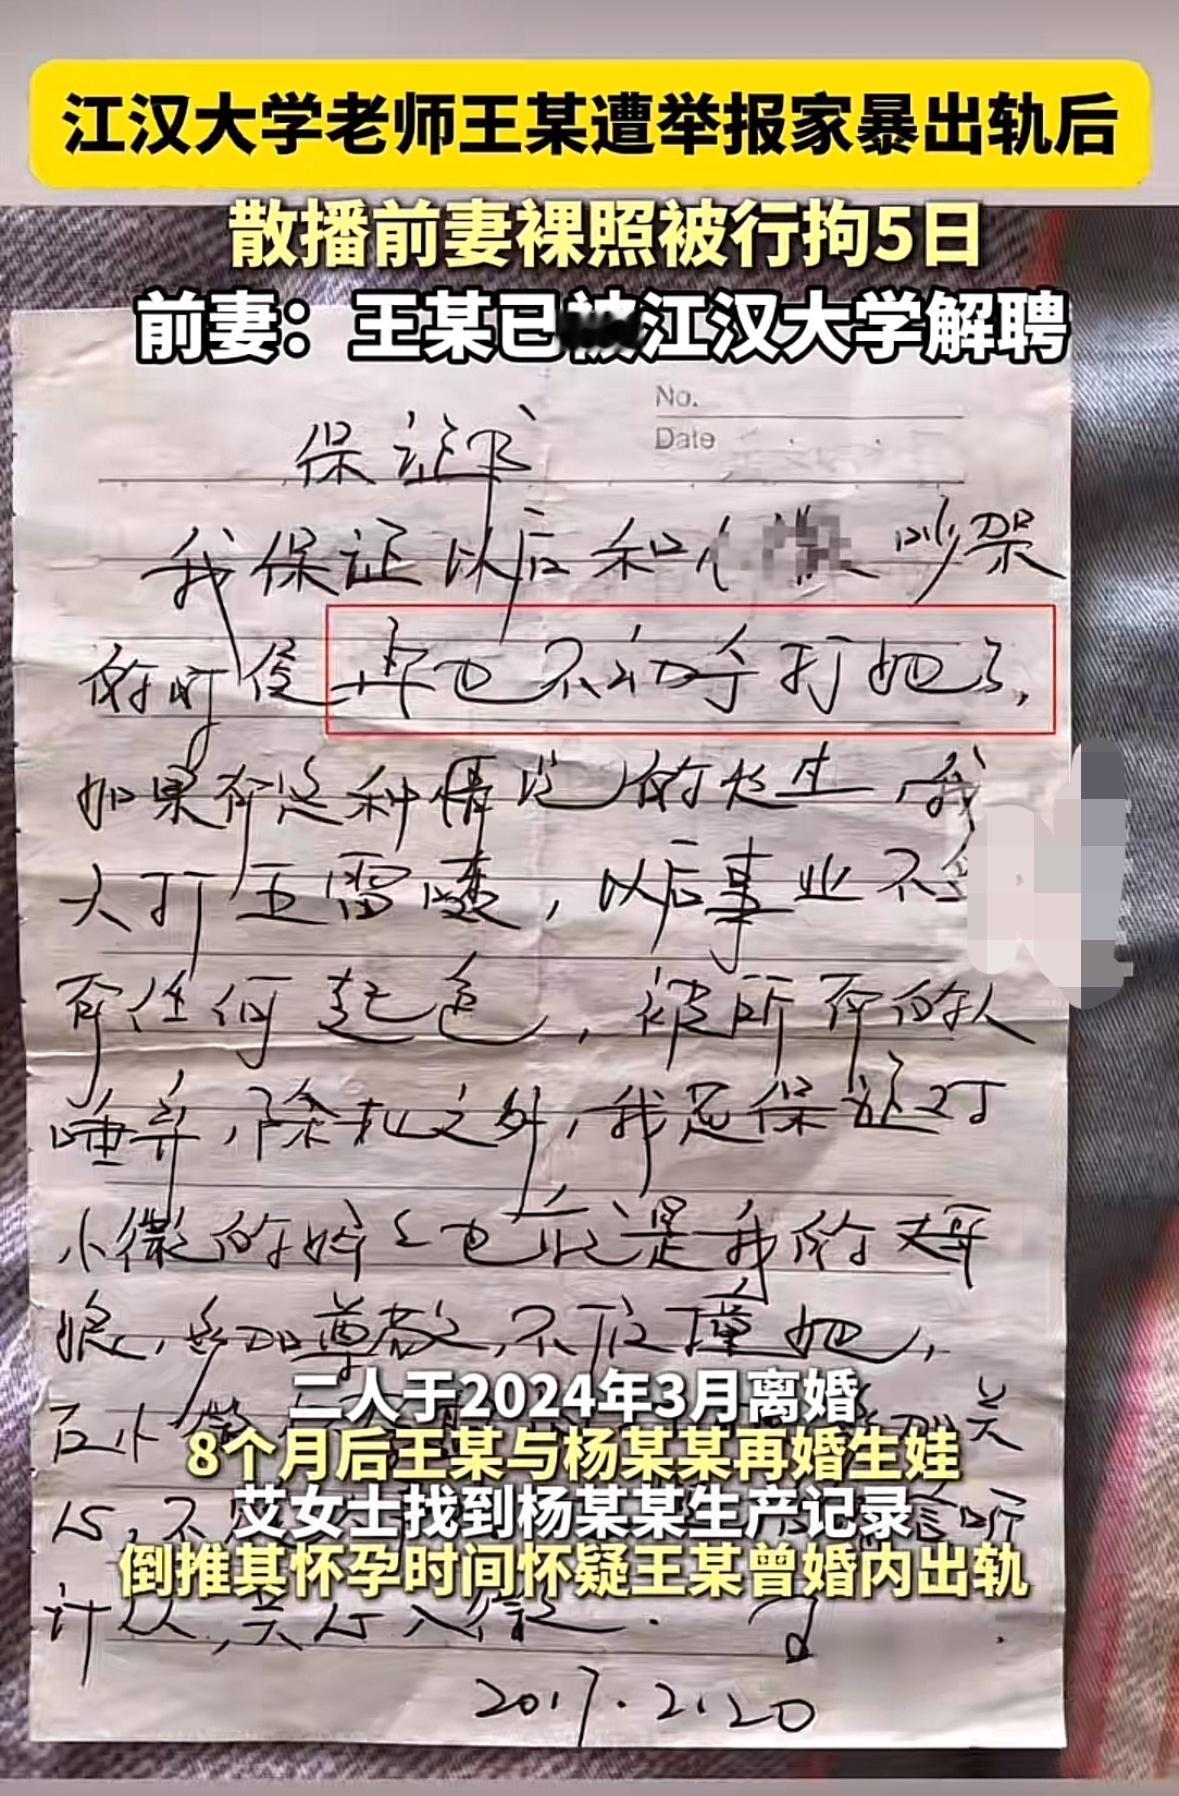 江汉大学老师王某遭举报家暴出轨后
散播前妻裸照被行拘5日
前妻：王某已被江汉大学解聘
No.
Date
保证书
我保证以后和 吵架
的时侯再也不动手打她了，
如果有这种情况的发生，我
天打五雷轰，以后事业不
有任何起色，被所有的人
唾弃，除此之外，我忍保证对
小微的妈妈也应是我的丈母
娘，多加尊敬，不顶撞她，
二人于2024年3月离婚
8个月后王某与杨某某再婚生娃
艾女士找到杨某某生产记录
倒推其怀孕时间怀疑王某曾婚内出轨
计从，关心小微。
2017.2.20